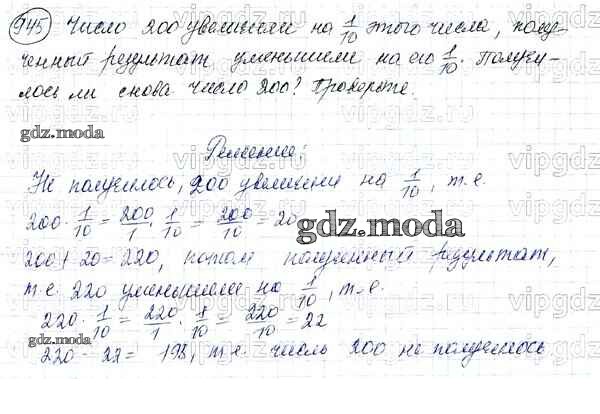 945 Число 200 увеличили на 1/10 этого числа, полу-
ченный результат уменьшили на его 1/10. Получи-
лось ли снова число 200? Проверьте.
gdz.moda
Решение:
Не получилось, 200 увеличили на 1/10, т.е.
200 · 1/10 = 200/1 · 1/10 = 200/10 = 20
gdz.moda
200 + 20 = 220, потом полученный результат,
т.е. 220 уменьшили на 1/10, т.е.
220 · 1/10 = 220/1 · 1/10 = 220/10 = 22
gdz.moda
220 - 22 = 198, т.е. число 200 не получилось
vipgdz